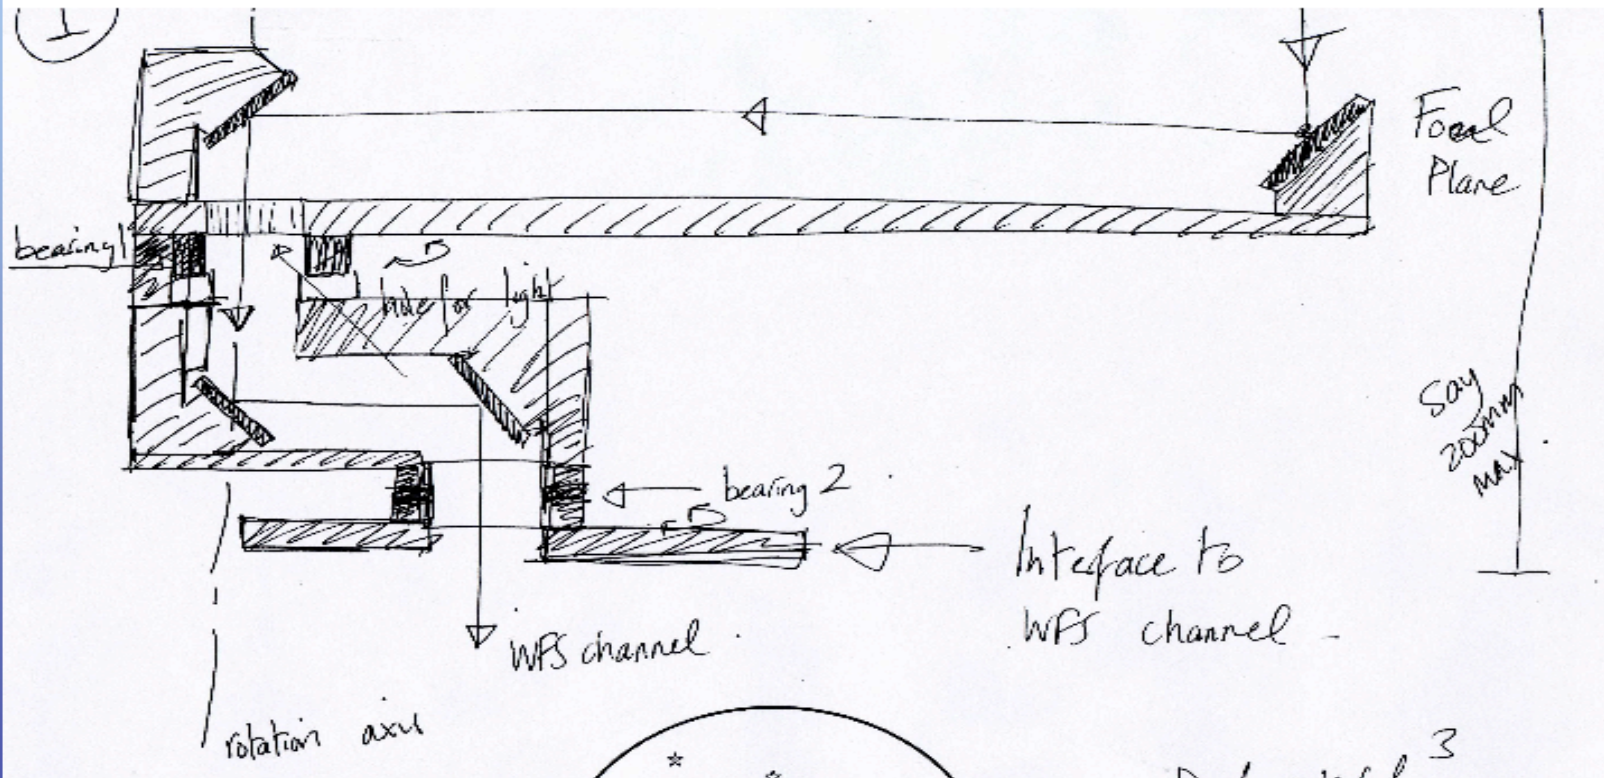 1
Focal
Plane
bearing 1
hole for light
Say
200mm
Max.
bearing 2
Inteface to
WFS channel
WFS channel
rotation axis
3